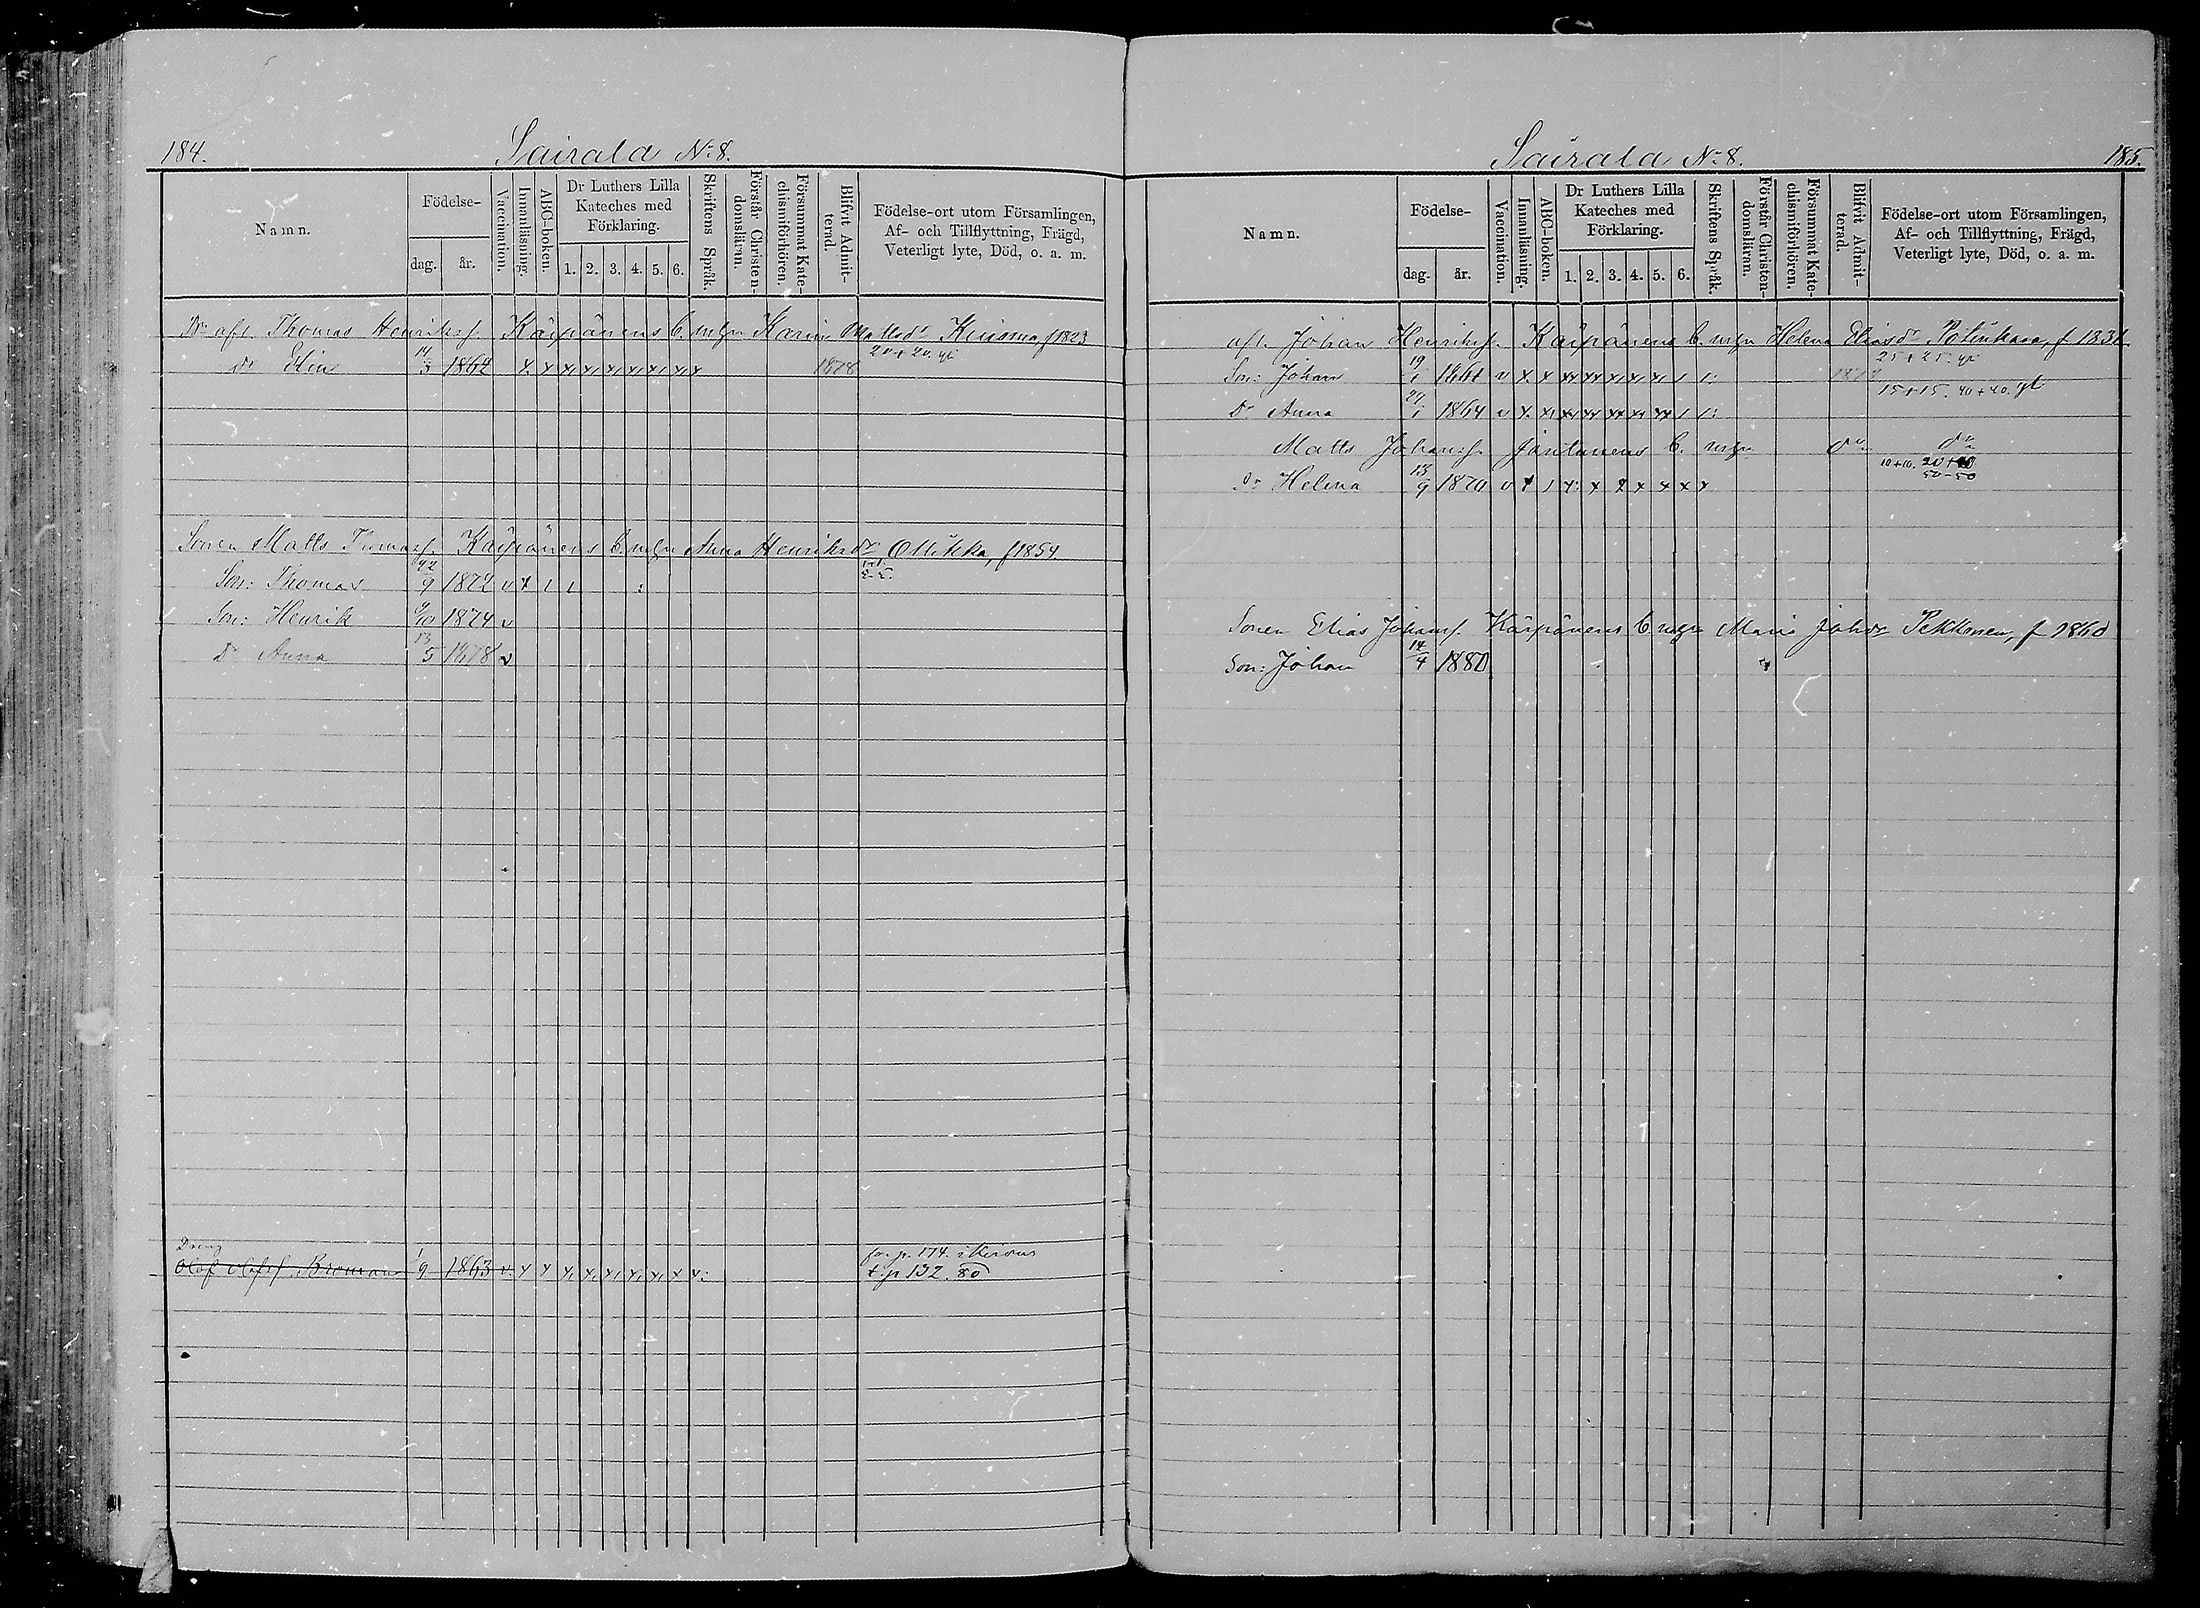 184.
Sairala No 8.
Namn.
Födelse-
dag.
år.
Vaccination.
Innanläsning.
ABC-boken.
Dr Luthers Lilla
Kateches med
Förklaring.
1. 2. 3. 4. 5. 6.
Skriftens Språk.
Förstår Christen-
domsläran.
Försummat Kate-
chismiförhören.
Blifvit Admit-
terad.
Födelse-ort utom Församlingen,
Af- och Tillflyttning, Frägd,
Veterligt lyte, Död, o. a. m.
afl. Thomas Henrikss. Käipänens Karin Mattsdr Kuisma, f 1823
20+20. yt
dr Elin 14/3 1862 x. x x x x x x x x 1878
Sonen Matts Thomass. Käipänens Anna Henriksdr Ollikka, f 1854.
Son: Thomas 22/9 1872 v x 1 1 :
Son: Henrik 9/10 1874 v
Dr Anna 13/5 1878 v
Dreng
Olof Olofss. Broman 1/9 1863 v. x x x x x x x x v:
fr. p. 174.
t. p 132. 80
Sairala No 8.
185.
Namn.
Födelse-
dag.
år.
Vaccination.
Innanläsning.
ABC-boken.
Dr Luthers Lilla
Kateches med
Förklaring.
1. 2. 3. 4. 5. 6.
Skriftens Språk.
Förstår Christen-
domsläran.
Försummat Kate-
chismiförhören.
Blifvit Admit-
terad.
Födelse-ort utom Församlingen,
Af- och Tillflyttning, Frägd,
Veterligt lyte, Död, o. a. m.
afl. Johan Henrikss. Käipänens Helena Eliasdr f 1831
25+25. yt
Son: Johan 19/1 1861 v x. x xx xx x x x 1 1:
15+15. 40+40. yt
Dr Anna 1864 v x. x xx xx xx x xx 1 1:
Matts Johanss. Jantunens do do
10+10. 20+20
50-50
Dr Helena 13/9 1870 v x 1 x x x x x x x
Sonen Elias Johanss. Käipänens Maria Johdr Pekkonen, f 1860
Son: Johan 14/4 1880